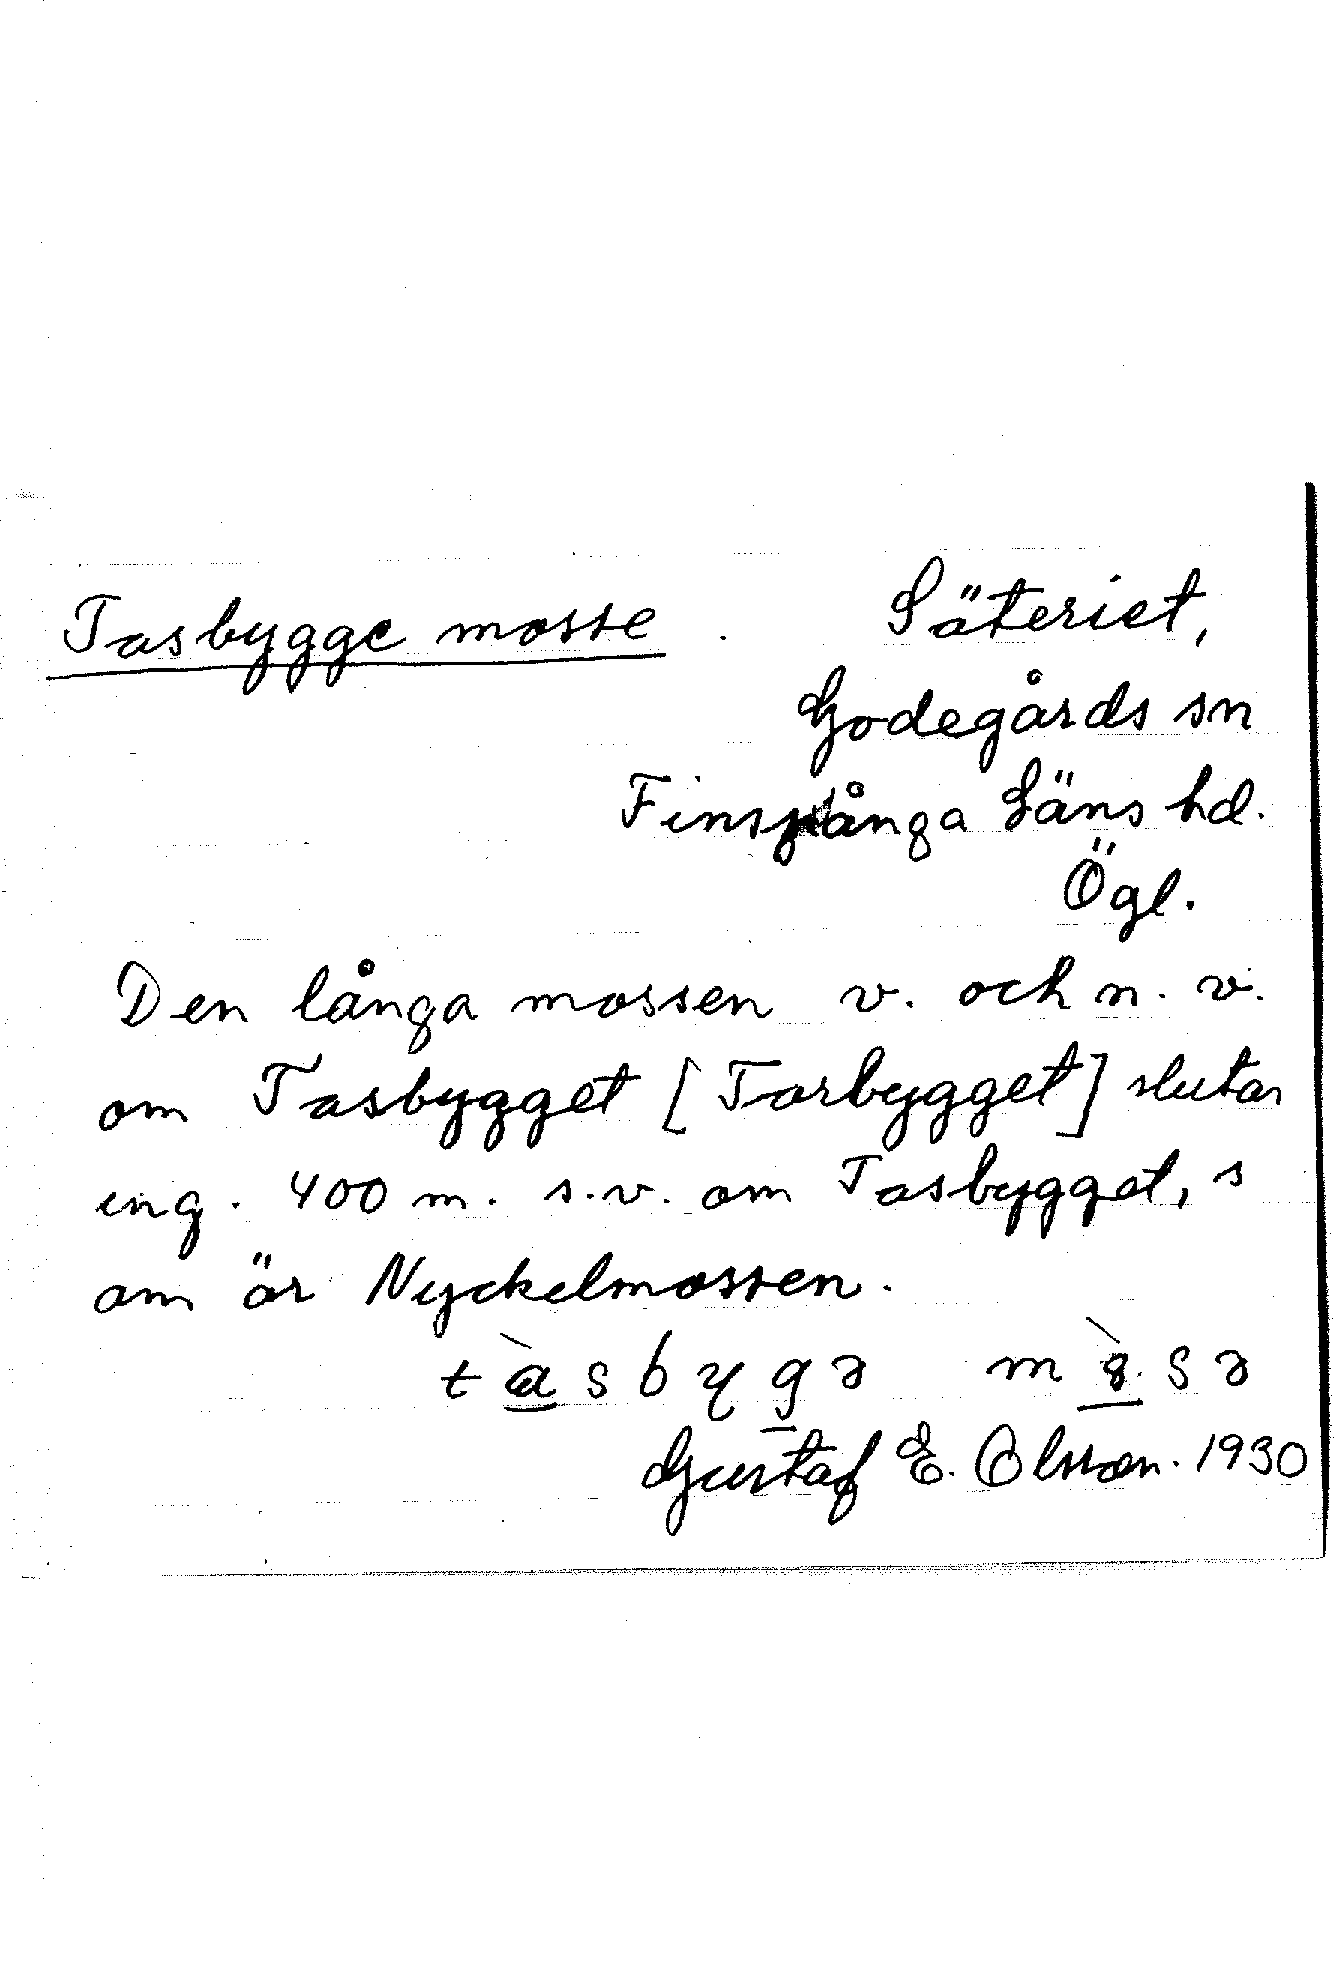 Tasbygge mosse. Säteriet,
Godegårds sn
Finspånga Läns hd.
Ögl.
Den långa mossen v. och n. v.
om Tasbygget [Torbygget] slutar
ung. 400 m. s.v. om Tasbygget, s
om är Nyckelmossen.
tàsbygə mòsə
Gustaf E. Olsson. 1930